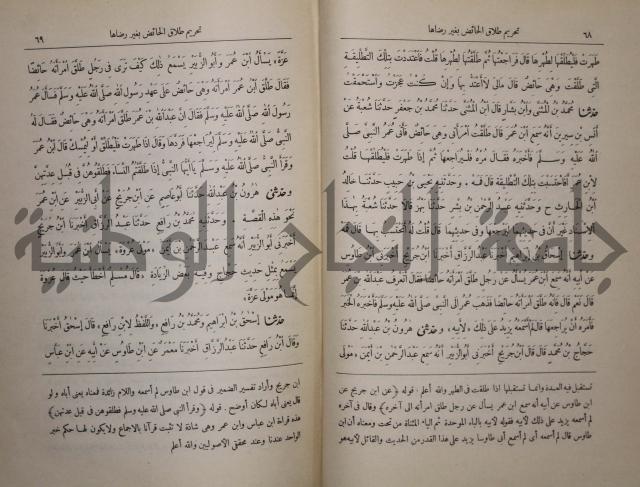 ٦٨
تحريم طلاق الحائض بغير رضاها
طهرت فليطلقها لطهرها قال فراجعتها ثم طلقتها لطهرها قلت فاعتددت بتلك التطليقة
التي طلقت وهي حائض قال مالي لا أعتد بها وإن كنت عجزت واستحمقت
حدثنا محمد بن المثنى وابن بشار قال ابن المثنى حدثنا محمد بن جعفر حدثنا شعبة عن
أنس بن سيرين أنه سمع ابن عمر قال طلقت امرأتي وهي حائض فأتى عمر النبي صلى
الله عليه وسلم فأخبره فقال مره فليراجعها ثم إذا طهرت فليطلقها قلت
لابن عمر أفاحتسبت بتلك التطليقة قال فمه . وحدثنيه يحيى بن حبيب حدثنا خالد
ابن الحارث ح وحدثنيه عبد الرحمن بن بشر حدثنا بهز قالا حدثنا شعبة بهذا
الإسناد غير أن في حديثهما ليرجعها وفي حديثهما قال قلت له أتحتسب بها قال فمه
وحدثنا إسحق بن إبراهيم أخبرنا عبد الرزاق أخبرنا ابن جريج أخبرني ابن طاوس
عن أبيه أنه سمع ابن عمر يسأل عن رجل طلق امرأته حائضا فقال أتعرف عبد الله بن عمر
قال نعم قال فإنه طلق امرأته حائضا فذهب عمر إلى النبي صلى الله عليه وسلم فأخبره الخبر
فأمره أن يراجعها قال لم أسمعه يزيد على ذلك «لأبيه» وحدثني هرون بن عبد الله حدثنا
حجاج بن محمد قال قال ابن جريج أخبرني أبو الزبير أنه سمع عبد الرحمن بن أيمن «مولى
تستقبل فيه العدة وانما تستقبلها اذا طلقت في الطهر والله أعلم . قوله ﴿عن ابن جريج عن
ابن طاوس عن أبيه أنه سمع ابن عمر يسأل عن رجل طلق امرأته الى آخره﴾ وقال في آخره
لم أسمعه يزيد على ذلك لأبيه فقوله لأبيه بالباء الموحدة ثم الياء المثناة من تحت ومعناه أن ابن
طاوس قال لم أسمعه أى لم أسمع أبى طاوسا يزيد على هذا القدر من الحديث والقائل لأبيه هو
تحريم طلاق الحائض بغير رضاها
٦٩
عزة» يسأل ابن عمر وأبو الزبير يسمع ذلك كيف ترى في رجل طلق امرأته حائضا
فقال طلق ابن عمر امرأته وهي حائض على عهد رسول الله صلى الله عليه وسلم فسأل عمر
رسول الله صلى الله عليه وسلم فقال إن عبد الله بن عمر طلق امرأته وهي حائض فقال له
النبي صلى الله عليه وسلم ليراجعها فردها وقال إذا طهرت فليطلق أو ليمسك قال ابن عمر
وقرأ النبي صلى الله عليه وسلم يا أيها النبي إذا طلقتم النساء فطلقوهن في قبل عدتهن
وحدثني هرون بن عبد الله حدثنا أبو عاصم عن ابن جريج عن أبي الزبير عن ابن عمر
نحو هذه القصة . وحدثنيه محمد بن رافع حدثنا عبد الرزاق أخبرنا ابن جريج
أخبرني أبو الزبير أنه سمع عبد الرحمن بن أيمن «مولى عروة» يسأل ابن عمر وأبو الزبير
يسمع بمثل حديث حجاج وفيه بعض الزيادة «قال مسلم أخطأ حيث قال عروة
إنما هو مولى عزة»
حدثنا إسحق بن إبراهيم ومحمد بن رافع «واللفظ لابن رافع» قال إسحق أخبرنا
وقال ابن رافع حدثنا عبد الرزاق أخبرنا معمر عن ابن طاوس عن أبيه عن ابن عباس
ابن جريج وأراد تفسير الضمير في قول ابن طاوس لم أسمعه واللام زائدة فمعناه يعنى أباه ولو
قال يعنى أباه لكان أوضح . قوله ﴿وقرأ النبي صلى الله عليه وسلم فطلقوهن فى قبل عدتهن﴾
هذه قراءة ابن عباس وابن عمر وهى شاذة لا تثبت قرآنا بالاجماع ولا يكون لها حكم خبر
الواحد عندنا وعند محققى الأصوليين والله أعلم
جامعة النجاح الوطنية